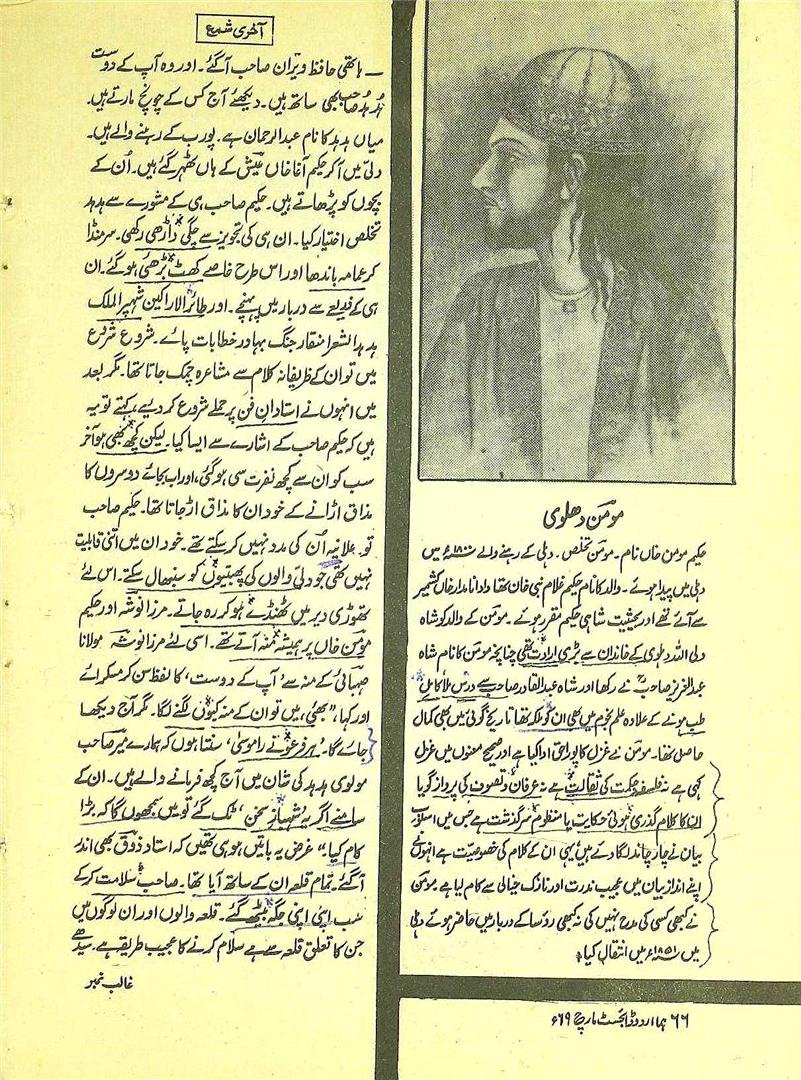 آخری شمع
— ہاتھی حافظ ویران صاحب آگئے۔ اور وہ آپ کے دوست
ہُدہُد صاحب بھی ساتھ ہیں۔ دیکھئے آج کس کے چونچ مارتے ہیں۔
میاں ہدہد کا نام عبدالرحمان ہے۔ پورب کے رہنے والے ہیں۔
دلّی میں آکر حکیم آغا خاں عیش کے ہاں ٹھہر گئے ہیں۔ اُن کے
بچوں کو پڑھاتے ہیں۔ حکیم صاحب ہی کے مشورے سے ہدہد
تخلص اختیار کیا۔ ان ہی کی تجویز سے چگی داڑھی رکھی۔ سر منڈا
کر عمامہ باندھا اور اس طرح خاصے کھٹ بڑھئی ہو گئے۔ ان
ہی کے ذریعے سے دربار میں پہنچے۔ اور طائر الاراکین شہپر الملک
ہدہد الشعرا منقار جنگ بہادر خطابات پائے۔ شروع شروع
میں تو ان کے ظریفانہ کلام سے مشاعرہ چمک جاتا تھا۔ مگر بعد
میں انہوں نے استادان فن پر حملے شروع کر دیے، کہتے تو یہ
ہیں کہ حکیم صاحب کے اشارے سے ایسا کیا۔ لیکن کچھ بھی ہو آخر
سب کو ان سے کچھ نفرت سی ہو گئی، اور اب بجائے دوسروں کا
مذاق اڑانے کے خود ان کا مذاق اڑ جاتا تھا۔ حکیم صاحب
تو علانیہ اُن کی مدد نہیں کر سکتے تھے۔ خود ان میں اتنی قابلیت
نہیں تھی جو دلّی والوں کی پھبتیوں کو سنبھال سکتے۔ اس لئے
تھوڑی دیر میں ٹھنڈے ہو کر رہ جاتے۔ مرزا نوشہ اور حکیم
مومنؔ خاں پر ہمیشہ منہ آتے تھے۔ اسی لئے مرزا نوشہ مولانا
صہبائی کے منہ سے ’آپ کے دوست‘ کا لفظ سن کر مسکرائے
اور کہا، ”بھئی، میں تو ان کے منہ کیوں لگنے لگا۔ مگر آج دیکھا
جائے گا۔ ’ہر فرعونے را موسیٰ‘ سنتا ہوں کہ ہمارے میر صاحب
مولوی ہدہد کی شان میں آج کچھ فرمانے والے ہیں۔ ان کے
سامنے اگر یہ ’شہباز سخن‘ ٹک گئے تو میں سمجھوں گا کہ بڑا
کام کیا“ غرض یہ باتیں ہو ہی تھیں کہ استاد ذوقؔ بھی اندر
آگئے۔ تمام قلعہ ان کے ساتھ آیا تھا۔ صاحب سلامت کر کے
سب اپنی اپنی جگہ بیٹھ گئے۔ قلعہ والوں اور ان لوگوں میں
جن کا تعلق قلعہ سے ہے سلام کرنے کا عجیب طریقہ ہے۔ سیدھے
غالب نمبر
مومنؔ دھلوی
حکیم مومن خاں نام۔ مومنؔ تخلص۔ دہلی کے رہنے والے ۱۸۰۰ء میں
دہلی میں پیدا ہوئے۔ والد کا نام حکیم غلام نبی خان تھا دادا نامدار خاں کشمیر
سے آئے تھے اور بحیثیت شاہی حکیم مقرر ہوئے۔ مومنؔ کے والد کو شاہ
ولی اللہ دہلوی کے خاندان سے بڑی ارادت تھی چنانچہ مومنؔ کا نام شاہ
عبدالعزیز صاحبؒ نے رکھا اور شاہ عبدالقادر صاحب سے درس لیا کامل
طب ہونے کے علاوہ علم نجوم میں بھی ان کو ملکہ تھا تاریخ گوئی میں بھی کمال
حاصل تھا۔ مومنؔ نے غزل کا پورا حق ادا کیا ہے اور صحیح معنوں میں غزل
کہی ہے نہ فلسفہ حکمت کی ثقالت ہے نہ عرفان و تصوف کی پرواز گویا
ان کا کلام گذری ہوئی حکایت یا منظوم سرگزشت ہے جس میں اسلوب
بیان نے چار چاند لگا دئے ہیں یہی ان کے کلام کی خصوصیت ہے انہوں نے
اپنے انداز بیان میں عجیب ندرت اور نازک خیالی سے کام لیا ہے مومنؔ
نے کبھی کسی کی مدح نہیں کی نہ کبھی رؤسا کے دربار میں حاضر ہوئے دہلی
میں ۱۸۵۱ء میں انتقال کیا
۶۶ ہما اردو ڈائجسٹ مارچ ۶۹ء